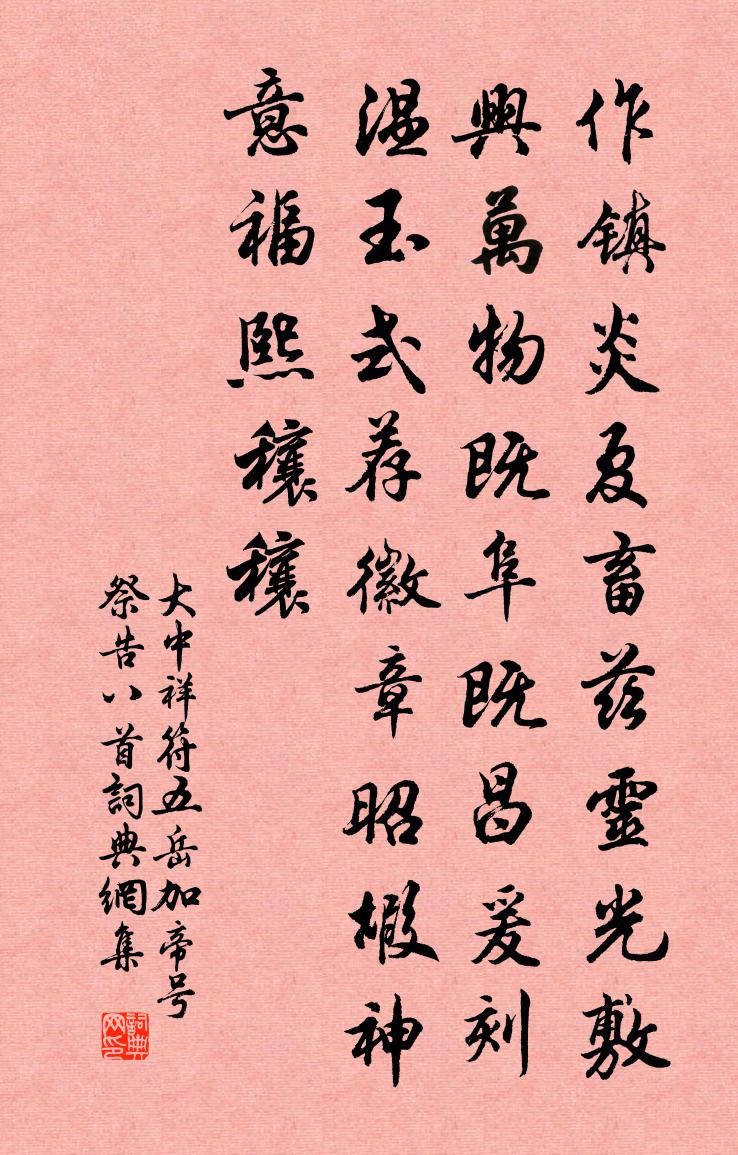 作鎮炎夏畜兹靈光敷
興萬物既阜既昌爰刻
温玉式荐徽章昭椵神
意福熙穰穰
大中祥符五岳加帝号
祭告八首詞典網集
詞典
网印